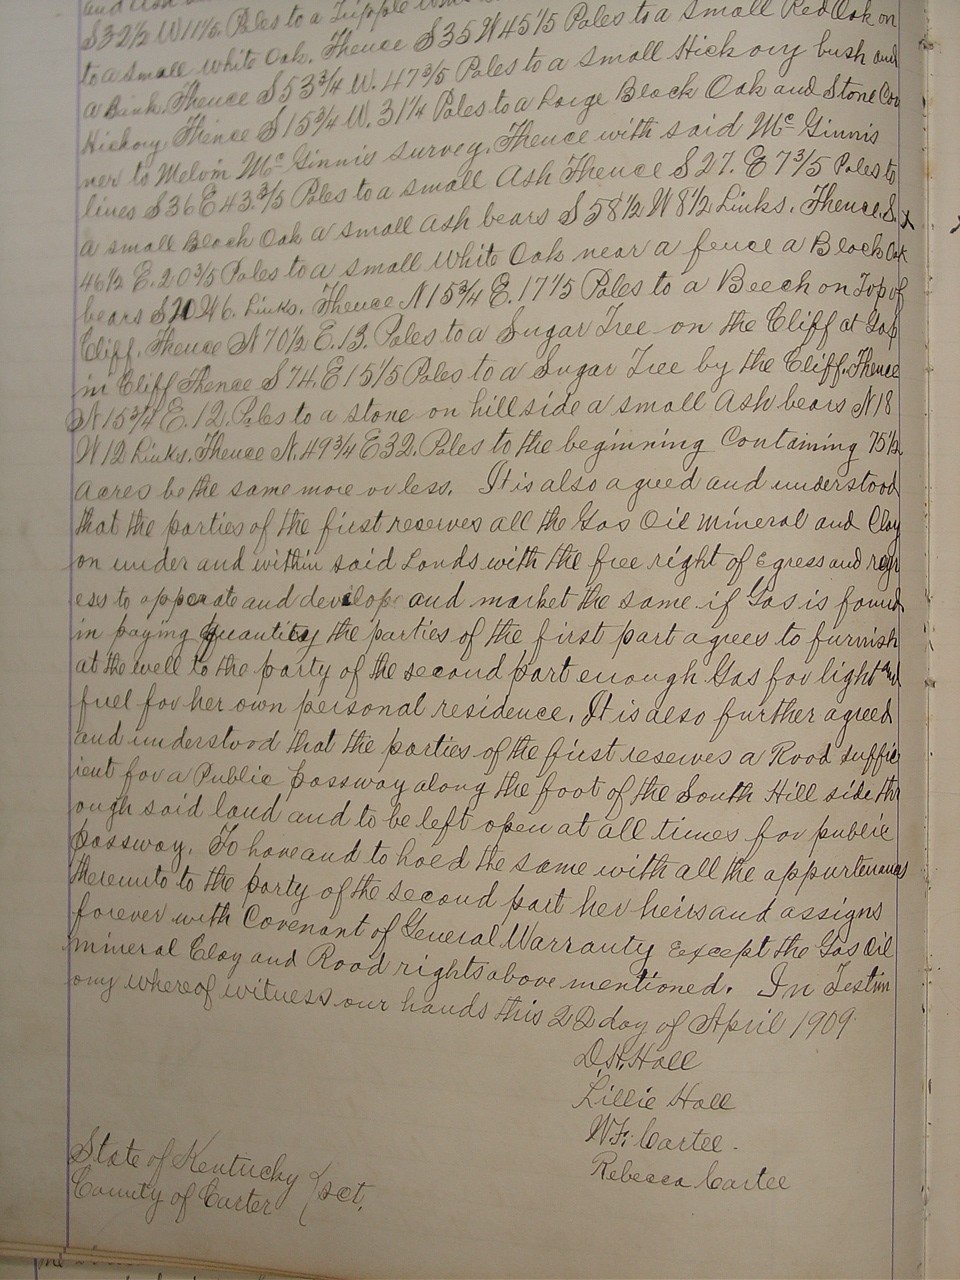 and Ash
S 32½ W 11 1/5 Poles to a Tripple
to a small White Oak. Thence S 35 W 45 1/5 Poles to a small Red Oak on
a Bank. Thence S 53 3/4 W. 47 3/5 Poles to a small Hickory bush and
Hickory. Thence S 15 3/4 W. 31 1/4 Poles to a Large Black Oak and Stone Cor
ner to Melvin McGinnis survey. Thence with said McGinnis
lines S 36 E 43 3/5 Poles to a small Ash Thence S 27. E 7 3/5 Poles to
a small Black Oak a small Ash bears S 58 1/2 W 8 1/2 Links. Thence S. x
46 1/2 E. 20 3/5 Poles to a small White Oak near a fence a Black Oak
bears S 20 W 6. Links. Thence N 15 3/4 E. 17 1/5 Poles to a Beech on Top of
Cliff. Thence N 70 1/2 E. 13. Poles to a Sugar Tree on the Cliff at Gap
in Cliff Thence S 74. E 15 1/5 Poles to a Sugar Tree by the Cliff. Thence
N 15 3/4 E. 12. Poles to a stone on hillside a small Ash bears N 18
W 12 Links. Thence N. 49 3/4 E 32. Poles to the beginning Containing 75 1/2
acres be the same more or less. It is also agreed and understood
that the parties of the first reserves all the Gas Oil mineral and Clay
on under and within said Lands with the free right of Egress and regr
ess to opperate and develop and market the same if Gas is found
in paying quantity the parties of the first part agrees to furnish
at the well to the party of the second part enough Gas for light and
fuel for her own personal residence. It is also further agreed
and understood that the parties of the first reserves a Road suffic
ient for a Public passway along the foot of the South Hill side thr
ough said land and to be left open at all times for public
passway. To have and to hold the same with all the appurtenances
thereunto to the party of the second part her heirs and assigns
forever with Covenant of General Warranty Except the Gas Oil
mineral Clay and Road rights above mentioned. In Testim
ony whereof witness our hands this 22 day of April 1909.
D. H. Hall
Lillie Hall
W. F. Cartee.
Rebecca Cartee
State of Kentucky
County of Carter } sct.